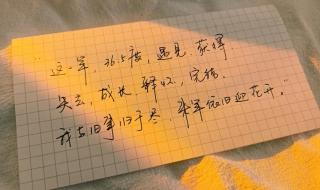 “这一年,365度,遇见、获得
失去,成长、释怀,完结。
我与旧事归于尽,来年依旧迎花开。”